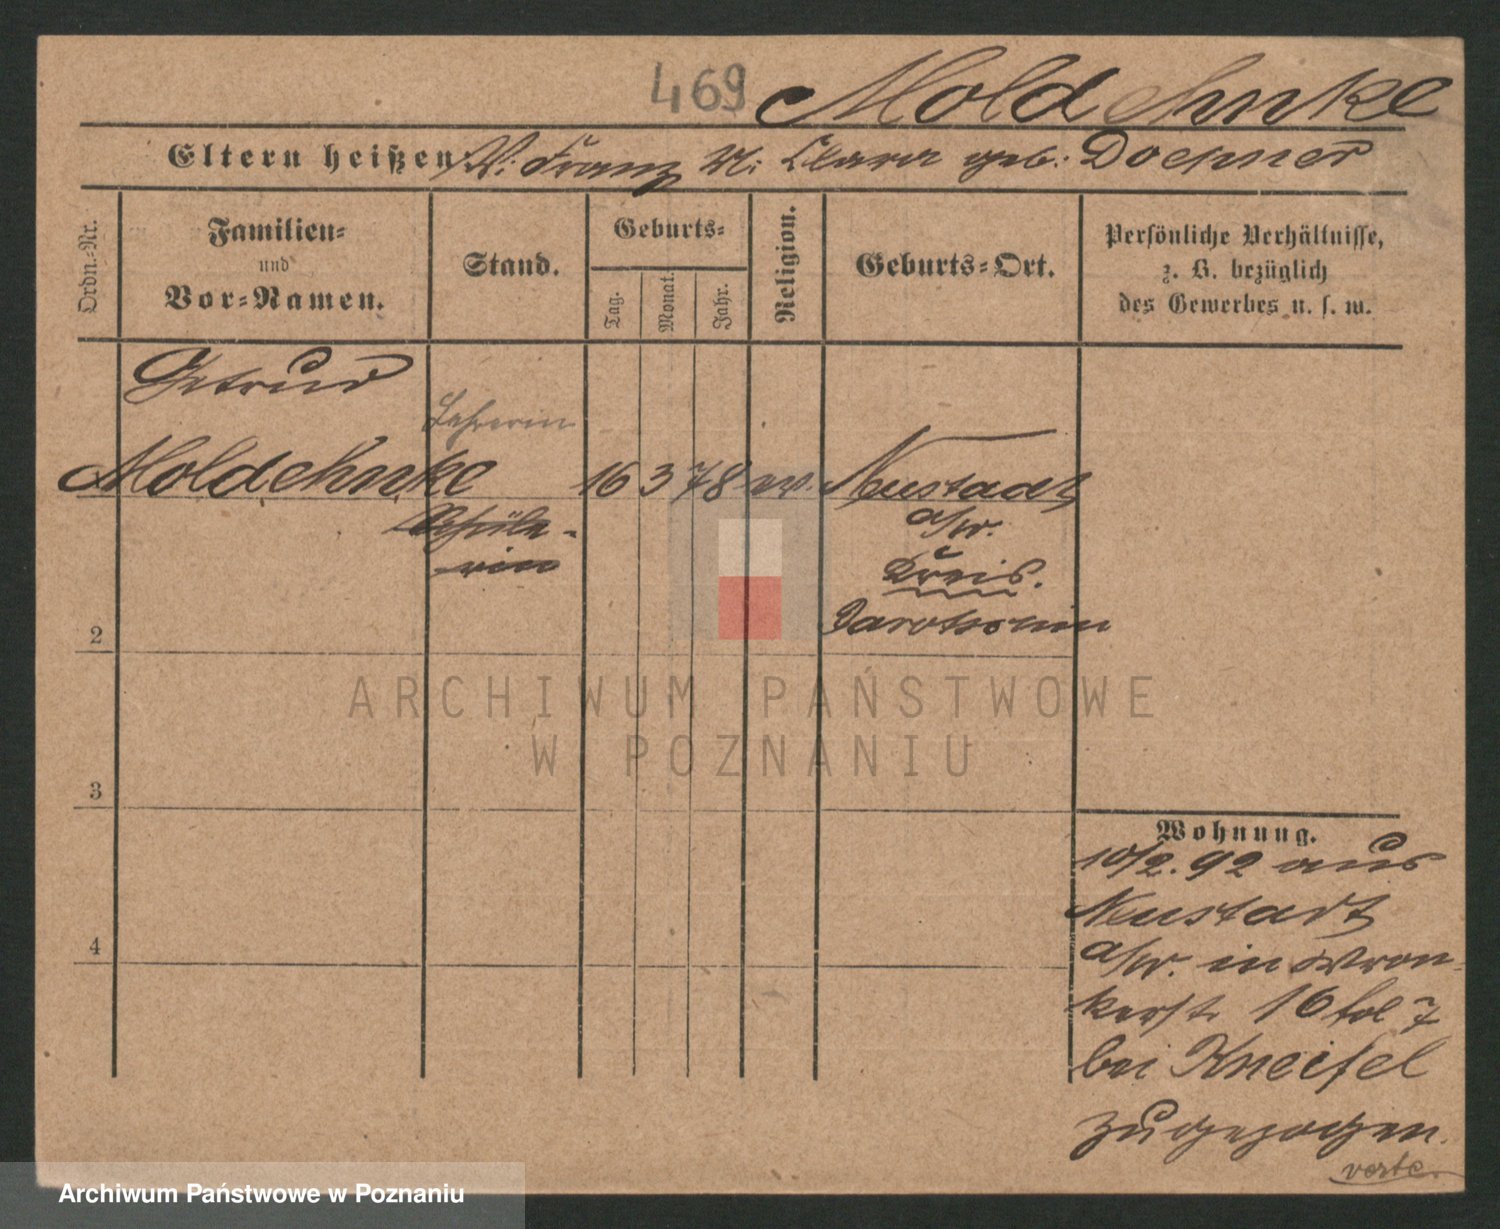 469 Moldehnke
Eltern heißen V: Franz M: Clara geb: Doepner
Ordn.-Nr.
Familien-
und
Vor-Namen.
Stand.
Geburts-
Tag.
Monat.
Jahr.
Religion.
Geburts-Ort.
Persönliche Verhältnisse,
z. B. bezüglich
des Gewerbes u. s. w.
Getrud
Lehrerin
Moldehnke 16 3 78 ev. Neustadt
a/W.
Schüle-
rin
Kreis.
Jarotschin
2
3
4
Wohnung.
10/2.92 aus
Neustadt
a/W. in Wron-
kerst. 16 fol 7
bei Kneifel
zugezogen.
verte.
ARCHIWUM PAŃSTWOWE
W POZNANIU
Archiwum Państwowe w Poznaniu